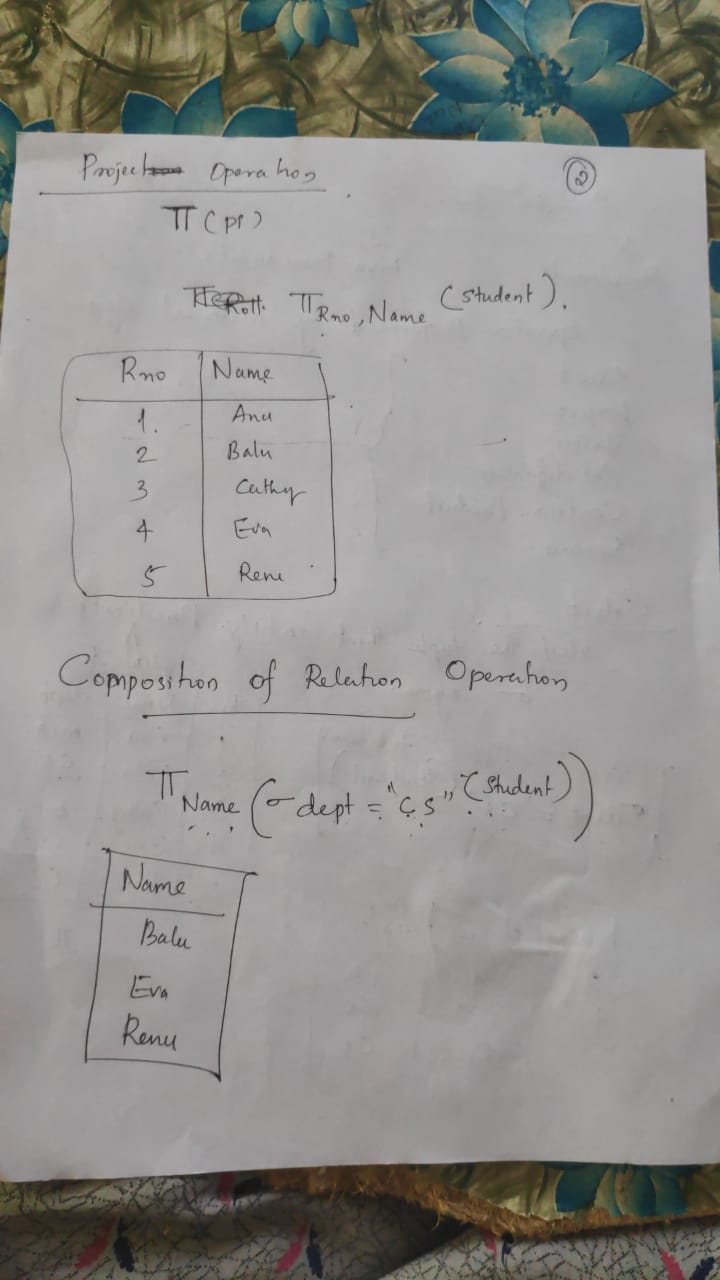 Project Operation
2
π (pi)
π Rno, Name (Student).
Rno Name
1. Anu
2 Balu
3 Cathy
4 Eva
5 Renu
Composition of Relation Operation
π Name (σ dept = "CS" (Student))
Name
Balu
Eva
Renu